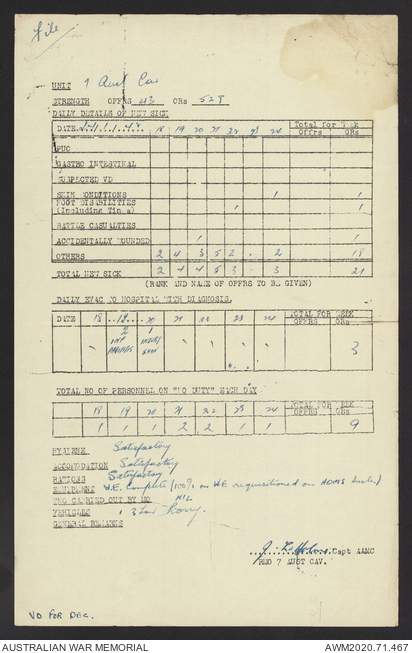 file
UNIT 7 Aust Cav
STRENGTH OFFRS 43 ORs 528
DAILY DETAILS OF NEW SICK
DATE 18 19 20 21 22 23 24 Total for Week
Offrs ORs
PUO
GASTRO INTESTINAL
SUSPECTED VD
SKIN CONDITIONS 1 1
FOOT DISABILITIES
(Including Tinea) 1 1
BATTLE CASUALTIES
ACCIDENTALLY WOUNDED 1 1
OTHERS 2 4 3 5 2 . 2 18
TOTAL NEW SICK 2 4 4 5 3 . 3 21
(RANK AND NAME OF OFFRS TO BE GIVEN)
DAILY EVAC TO HOSPITAL WITH DIAGNOSIS.
DATE 18 19 20 21 22 23 24 TOTAL FOR WEEK
OFFRS ORs
2 1
3
TOTAL NO OF PERSONNEL ON "NO DUTY" EACH DAY
18 19 20 21 22 23 24 TOTAL FOR WEEK
OFFRS ORs
1 1 1 2 2 1 1 9
HYGIENE Satisfactory
ACCOMODATION Satisfactory
RATIONS Satisfactory
EQUIPMENT W.E. complete (100% on WE requisitioned on ADMS
CARRIED OUT BY MO NIL
VEHICLES 1 3 ton Lorry.
GENERAL REMARKS
Capt AAMC
RMO 7 AUST CAV.
VD FOR DEC.
AUSTRALIAN WAR MEMORIAL AWM2020.71.467